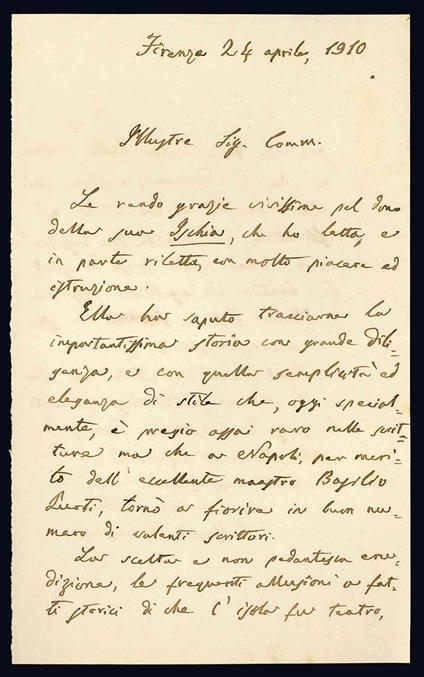 Firenze 24 aprile, 1910
Illustre Sig. Comm.
Le rendo grazie vivissime pel dono
della sua Ischia, che ho letta, e
in parte riletta, con molto piacere ed
istruzione.
Ella ha saputo tracciarne la
importantissima storia con grande dili=
genza, e con quella semplicità ed
eleganza di stile che, oggi special=
mente, è pregio assai raro nelle scrit=
ture ma che a Napoli, per meri=
to dell' eccellente maestro Basilio
Puoti, tornò a fiorire in buon nu=
mero di valenti scrittori.
La scelta e non pedantesca eru=
dizione, le frequenti allusioni a fat=
ti storici di che l' isola fu teatro,